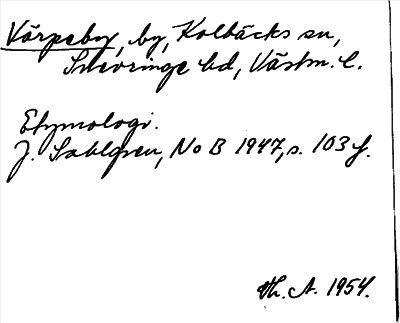 Värpeby, by, Kolbäcks sn,
Snevringe hd, Västm. l.
Etymologi.
J. Sahlgren, NoB 1947, s. 103 f.
Th. A. 1954.